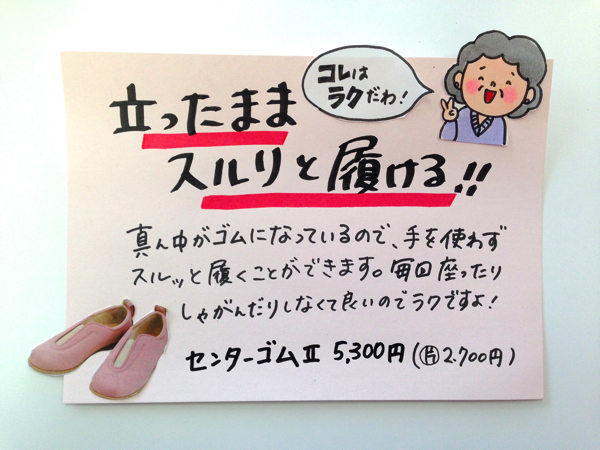 コレは
ラクだわ!
立ったまま
スルリと履ける!!
真ん中がゴムになっているので、手を使わず
スルッと履くことができます。毎回座ったり
しゃがんだりしなくて良いのでラクですよ!
センターゴムⅡ 5,300円(㊗2.700円)